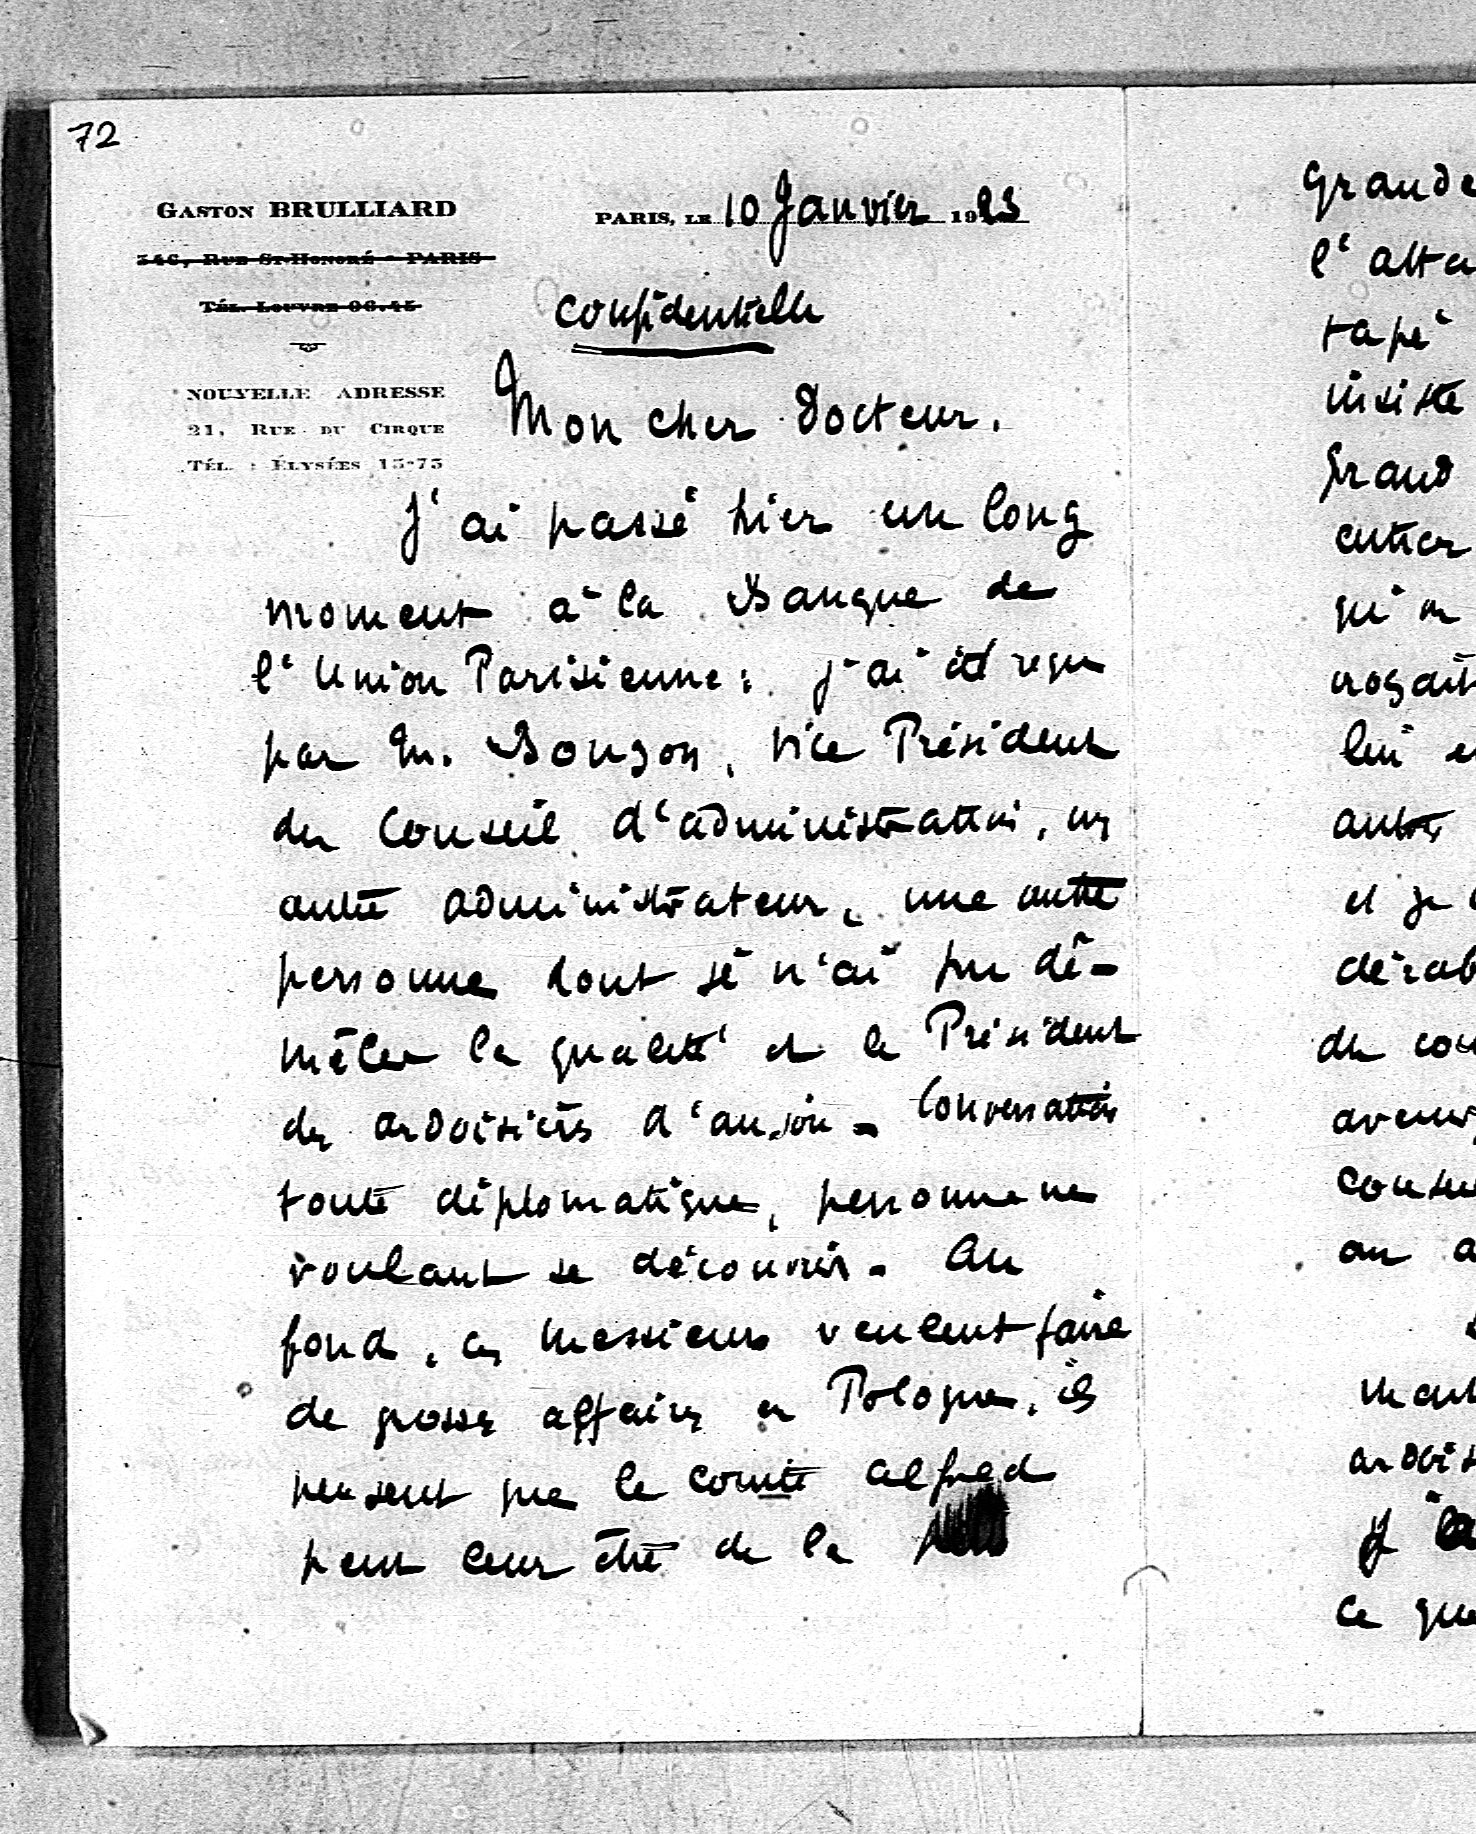 72
GASTON BRULLIARD
346, RUE ST-HONORÉ - PARIS
TÉL. LOUVRE 06.45
NOUVELLE ADRESSE
21, RUE DU CIRQUE
TÉL. : ÉLYSÉES 15-75
PARIS, LE 10 Janvier 1923
Confidentielle
Mon cher Docteur.
J'ai passé hier un long
moment à la Banque de
l'Union Parisienne: j'ai été reçu
par M. Bouzon, Vice Président
du Conseil d'administration, un
autre administrateur, une autre
personne dont je n'ai pu dé-
mêler la qualité et le Président
des ardoisières d'anjou - Conversation
toute diplomatique, personne ne
voulant se découvrir - Au
fond, ces messieurs veulent faire
de grosses affaires en Pologne, ils
pensent que le comité alfred
peut leur être de la
grande
l'atta
tapé
insiste
grand
entier
qu'on
croyait
lui
autres
et je
dérob
de cou
avenir
conse
au a
ment
ardois
J'
ce que